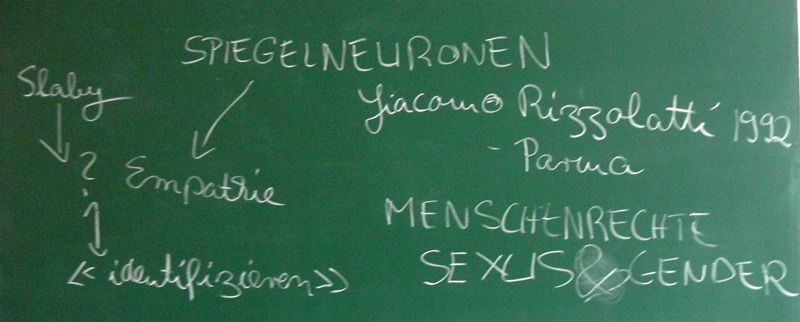 SPIEGELNEURONEN
Slaby
Giacomo Rizzolatti 1992
- Parma
? Empatrie
MENSCHENRECHTE
SEXUS & GENDER
<< identifizieren >>